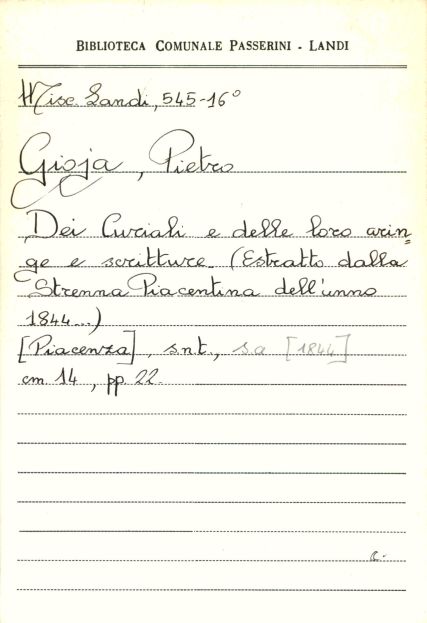 BIBLIOTECA COMUNALE PASSERINI - LANDI
Misc. Landi, 545-16°
Gioja, Pietro
Dei Curiali e delle loro arin=
ge e scritture. (Estratto dalla
Strenna Piacentina dell'anno
1844...)
[Piacenza], s.n.t., s.a. [1844]
cm. 14, pp. 22.